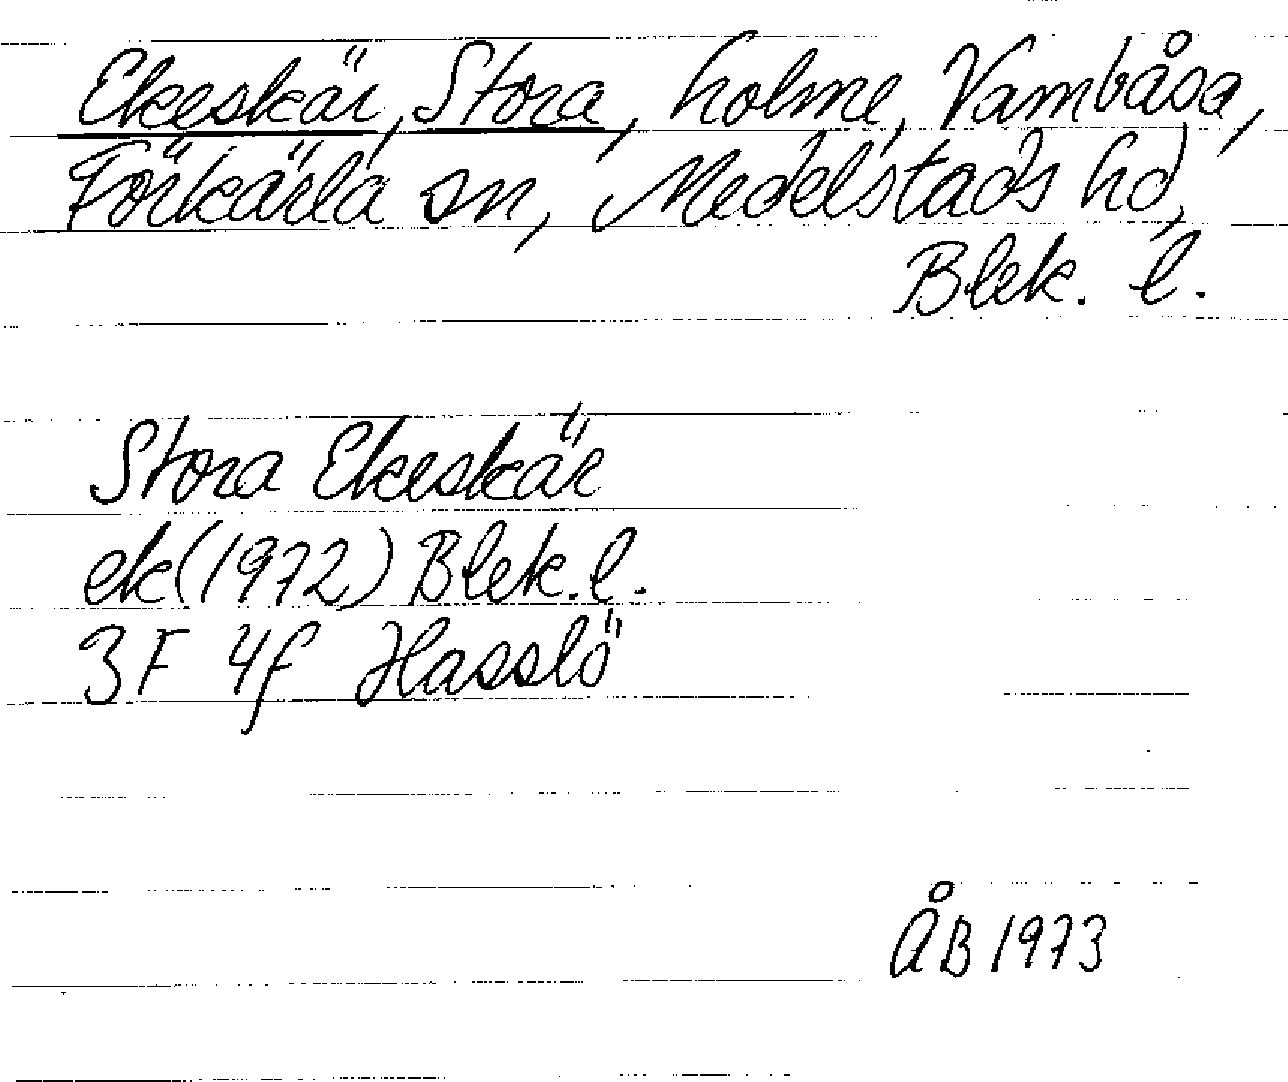 Ekeskär, Stora, holme, Vambåsa,
Förkärla sn, Medelstads hd,
Blek. l.
Stora Ekeskär
ek (1972) Blek. l.
3F 4f Hasslö
ÅB 1973